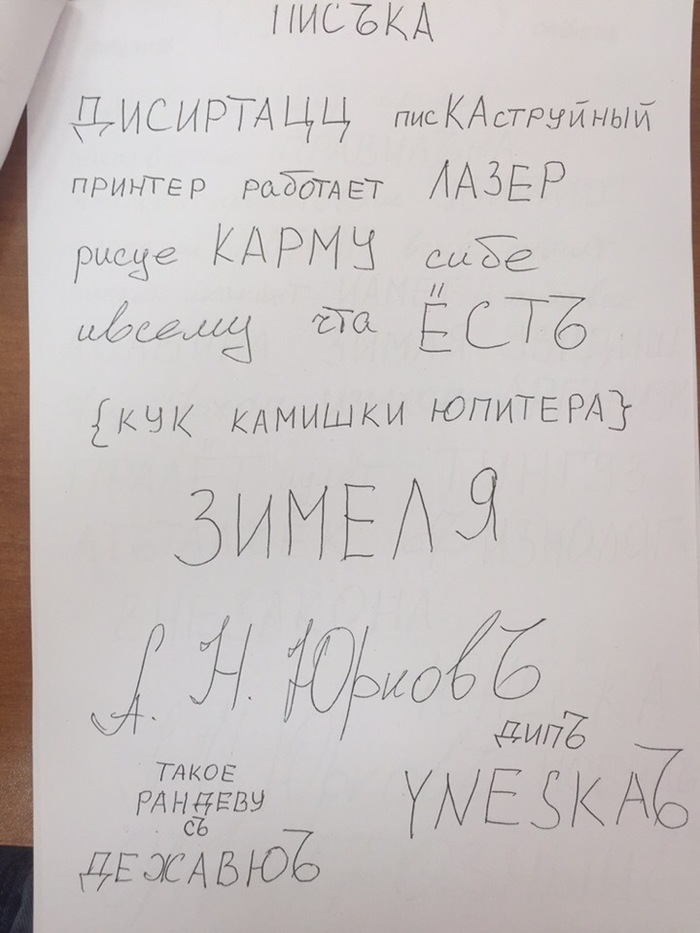 ПИСЪКА
ДИСИРТАЦЦ писКАструйный
принтер работает ЛАЗЕР
рисуе КАРМУ сибе
ивсему чта ЁСТЪ
{КУК КАМИШКИ ЮПИТЕРА}
ЗИМЕЛЯ
А. Н. ЮрковЪ
ДИПЪ
YNESKAЪ
ТАКОЕ
РАНДЕВУ
СЪ
ДЕЖАВЮЪ